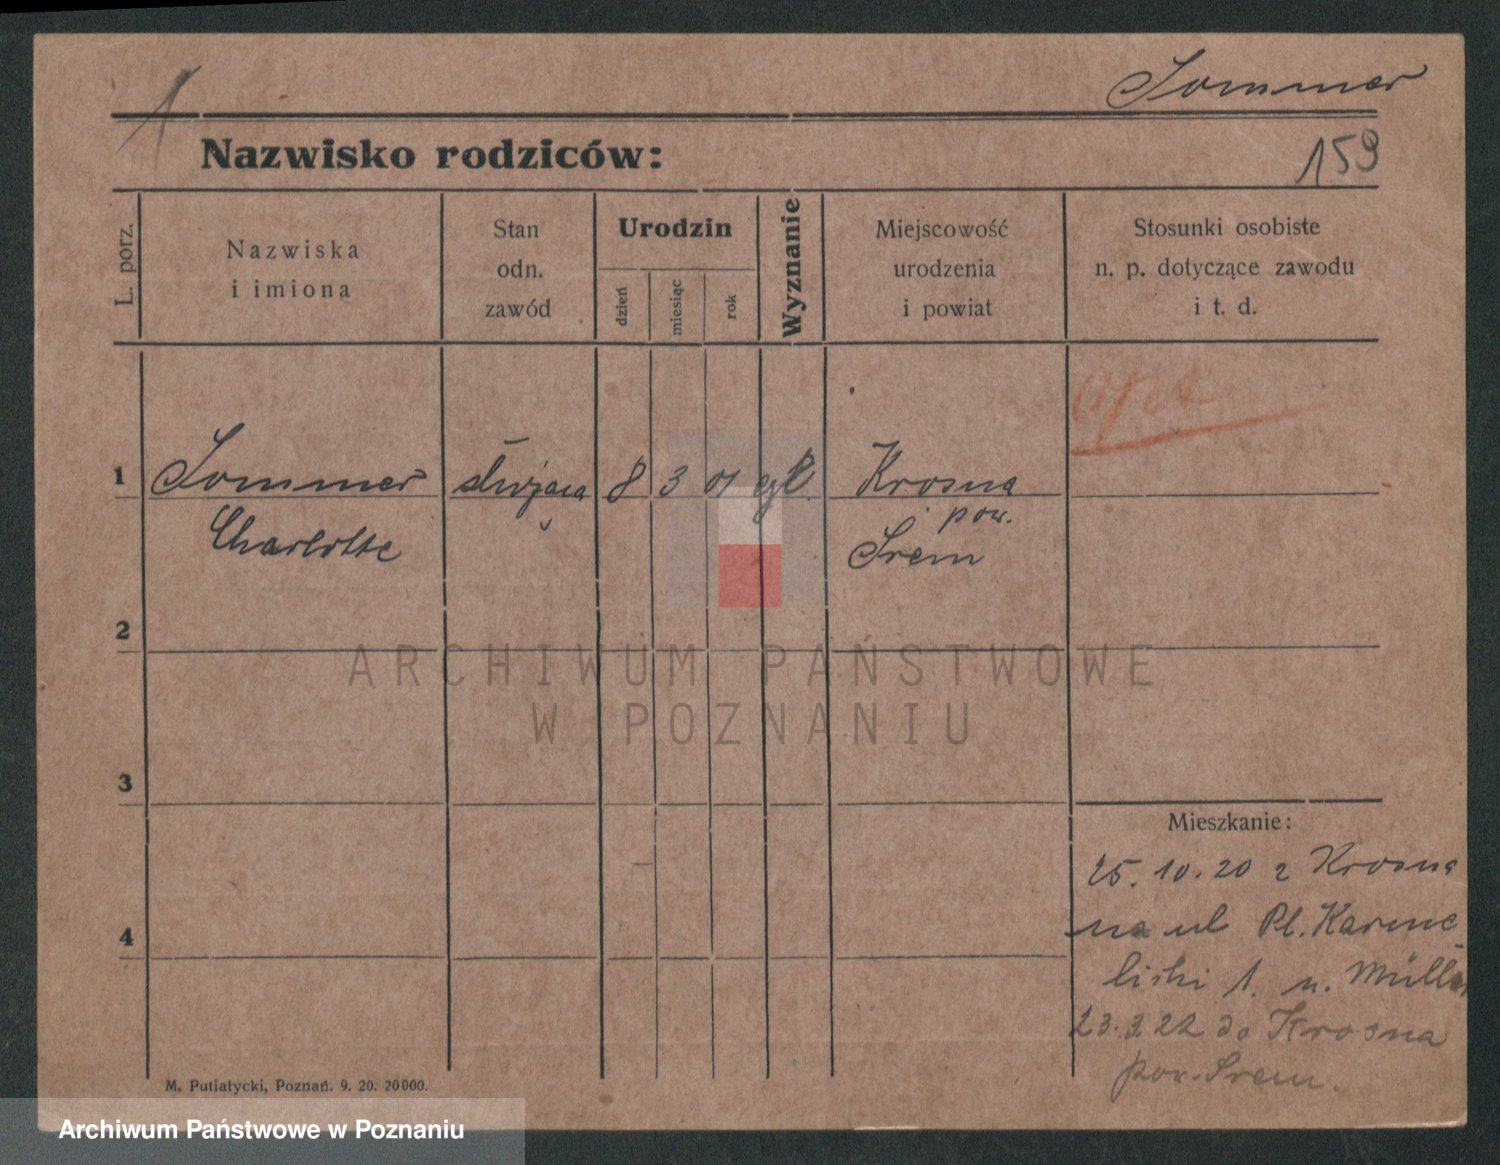 Sommer
Nazwisko rodziców:
159
L. porz.
Nazwiska
i imiona
Stan
odn.
zawód
Urodzin
dzień
miesiąc
rok
Wyznanie
Miejscowość
urodzenia
i powiat
Stosunki osobiste
n. p. dotyczące zawodu
i t. d.
1
Sommer służąca 8 3 01 Krosna
Charlotte
pow.
Śrem
2
ARCHIWUM PAŃSTWOWE
W POZNANIU
3
Mieszkanie:
25. 10. 20 z Krosna
na ul Pl. Karme
4
liski 1. u. Müller
23.3.22 do Krosna
pow. Śrem.
M. Putiatycki, Poznań. 9. 20. 20000.
Archiwum Państwowe w Poznaniu